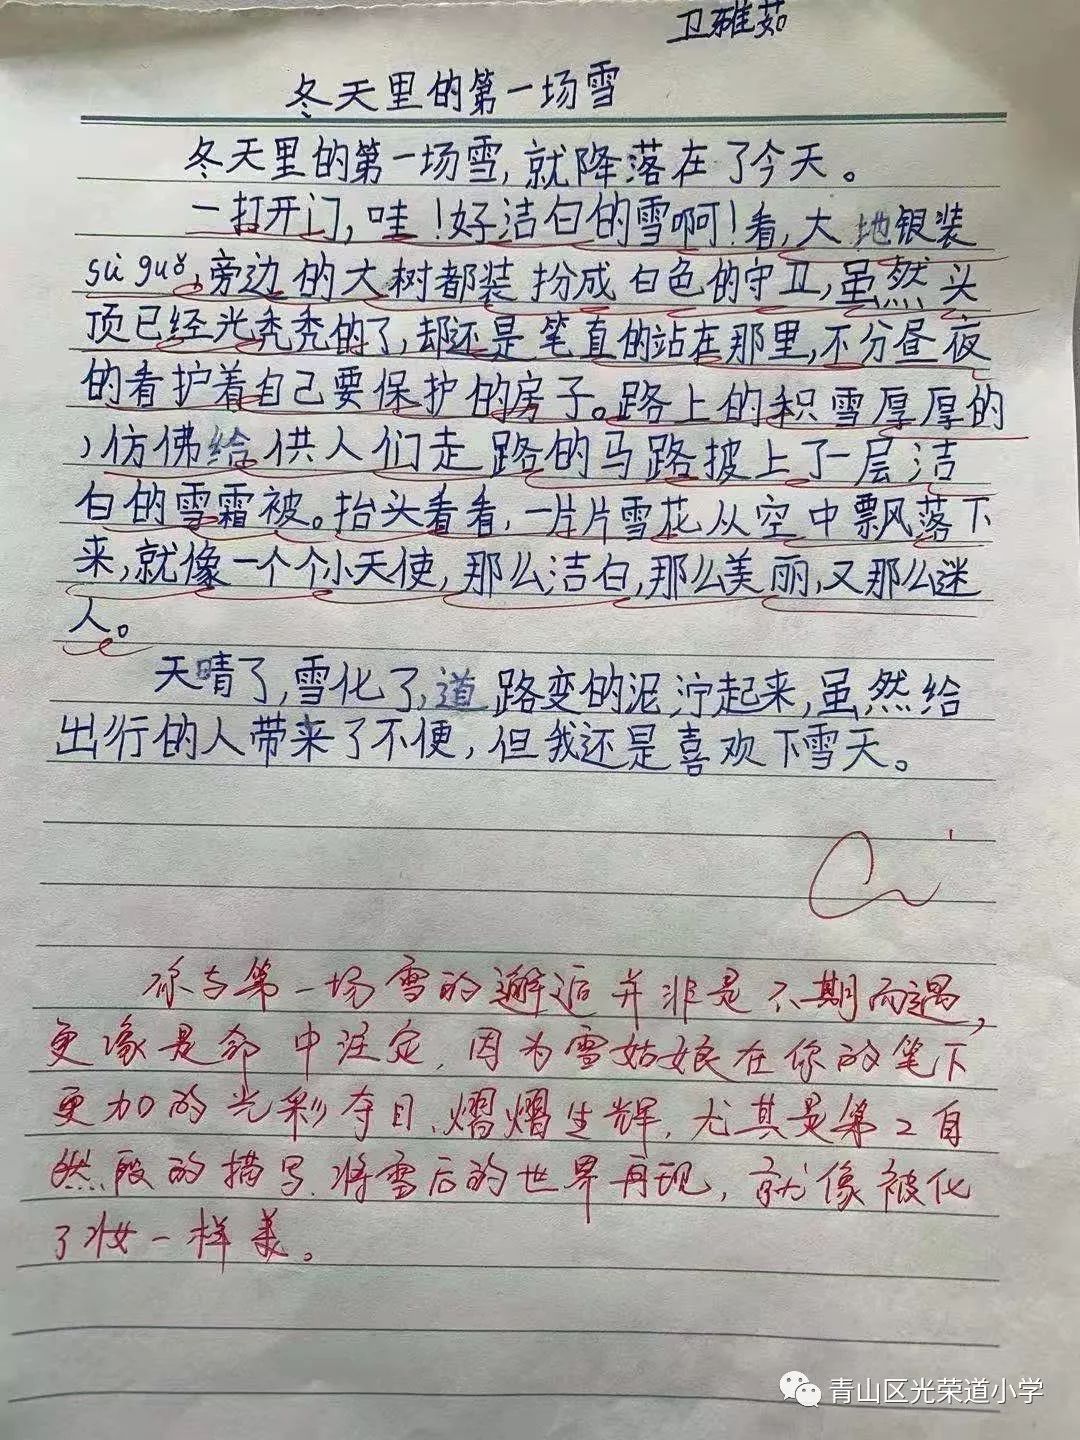 卫雅茹
冬天里的第一场雪
冬天里的第一场雪,就降落在了今天。
一打开门,哇!好洁白的雪啊!看,大地银装
sù guǒ,旁边的大树都装扮成白色的守卫,虽然头
顶已经光秃秃的了,却还是笔直的站在那里,不分昼夜
的看护着自己要保护的房子。路上的积雪厚厚的
,仿佛给供人们走路的马路披上了一层洁
白的雪霜被。抬头看看,一片片雪花从空中飘落下
来,就像一个个小天使,那么洁白,那么美丽,又那么迷
人。
天晴了,雪化了,道路变的泥泞起来,虽然给
出行的人带来了不便,但我还是喜欢下雪天。
你与第一场雪的邂逅并非是不期而遇,
更像是命中注定,因为雪姑娘在你的笔下
更加的光彩夺目、熠熠生辉,尤其是第2自
然段的描写,将雪后的世界再现,就像被化
了妆一样美。
青山区光荣道小学